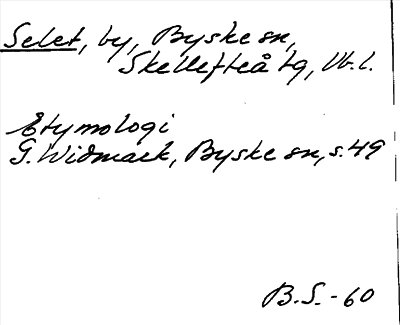 Selet, by, Byske sn,
Skellefteå tg, Vb.l.
Etymologi
G. Widmark, Byske sn, s. 49
B.S.-60